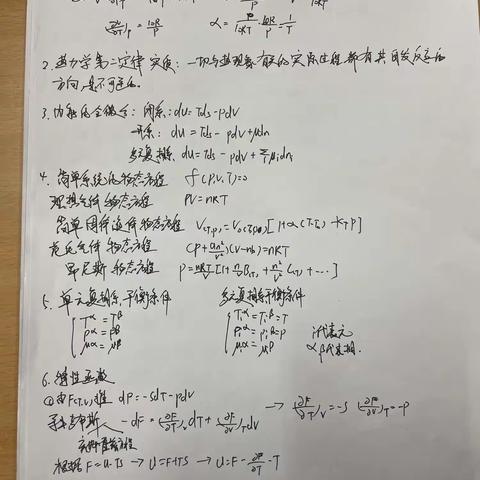 (∂v/∂T)p = nR/p    α = p/nRT · nR/p = 1/T
2. 热力学第二定律实质: 一切与热现象有关的实际过程都有其自发反应的
方向, 是不可逆的.
3. 内能的全微分: 闭系: du=Tds-pdv
开系: du=Tds-pdv+μdn
多元复相系 du=Tds-pdv+Σμidni
4. 简单系统的物态方程 f(P,V,T)=0
理想气体物态方程 PV=nRT
简单固体液体物态方程 V(T,p)=V0(T0,0)[1+α(T-T0)-KTP]
范氏气体物态方程 (P+an²/v²)(V-nb)=nRT
昂尼斯物态方程 P=nRT/V[1+n/vB(T)+n²/v²C(T)+…]
5. 单元复相系平衡条件    多元复相系平衡条件
Tα=Tβ    Tiα=Tiβ=T
pα=pβ    piα=piβ=p    i代表元
μα=μβ    μiα=μiβ    α β代表相.
6. 特性函数
①由F(T,V)推 dF=-SdT-pdV
dF=(∂F/∂T)v dT+(∂F/∂V)T dV → (∂F/∂T)v=-S (∂F/∂V)T=-P
根据F=U-TS → U=F+TS → U=F-∂F/∂T·T